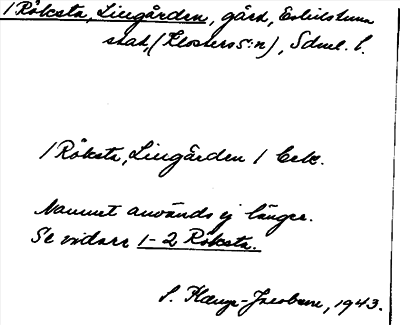 1 Råksta, Lingården, gård, Eskilstuna
stad, (Klosters s:n), Sdml. l.
1 Råksta, Lingården / Eek.
Namnet används ej längre.
Se vidare 1-2 Råksta.
S. -Jacobson, 1943.